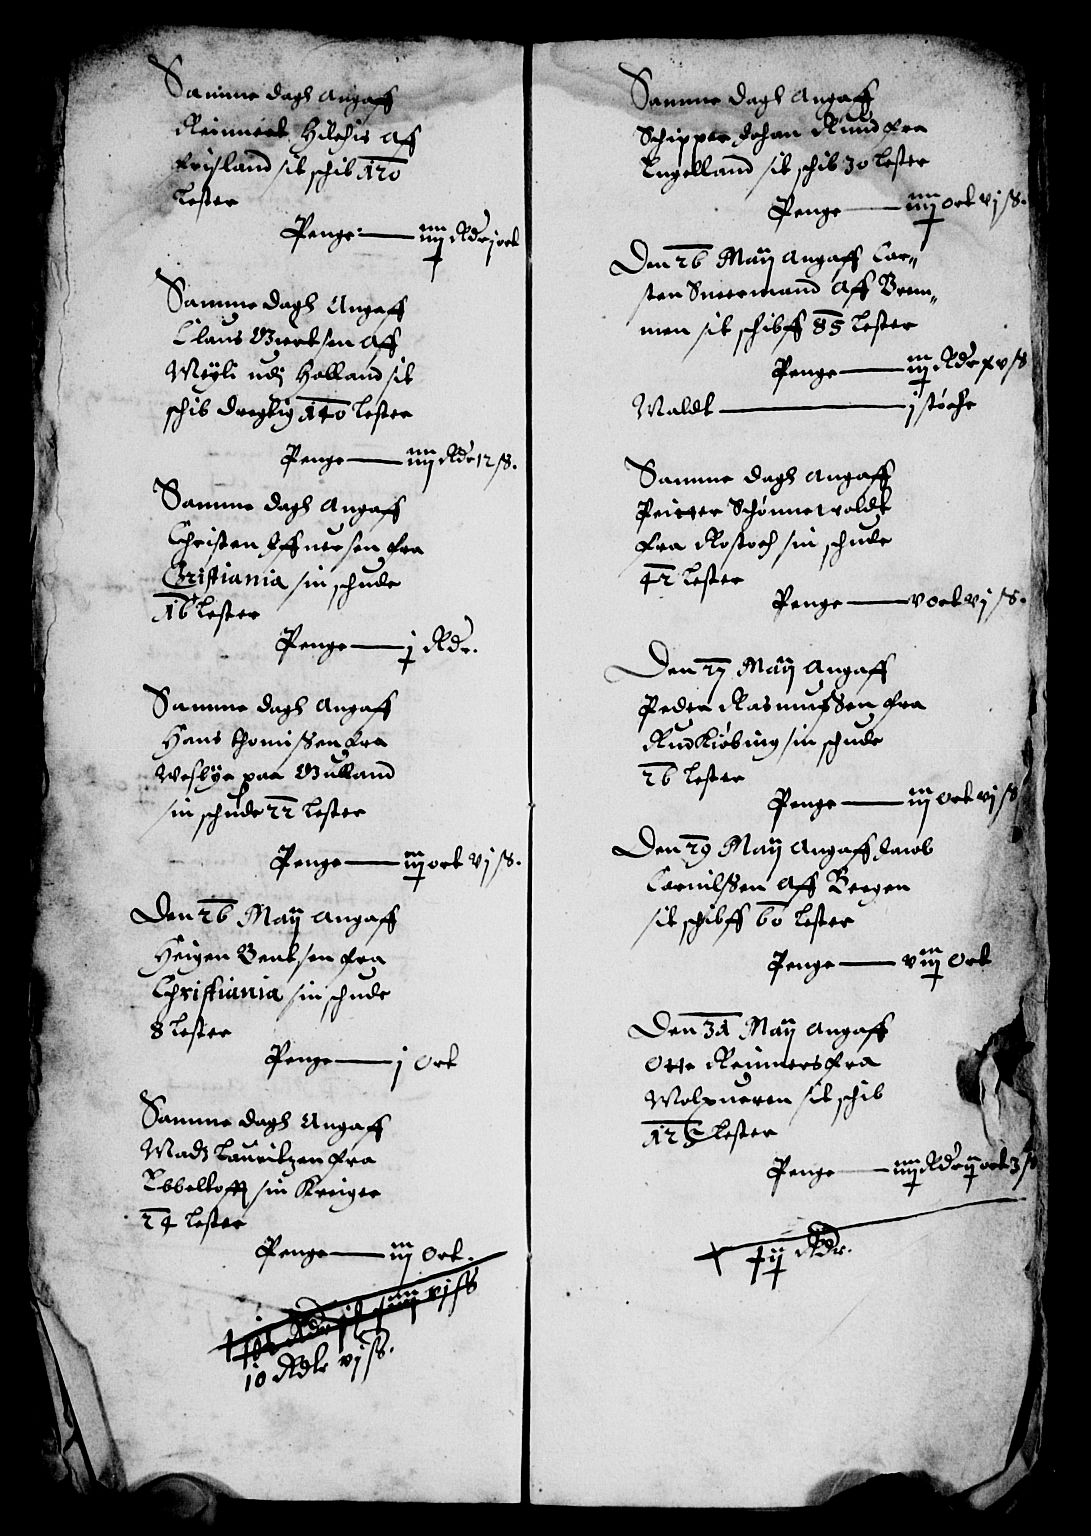 Samme dagh Angaff
Reinnert Hilchis Aff
Frisland sit schib 120
Lester
Penge — iiij Rdr j ort
Samme dagh Angaff
Claus Giertsen Aff
Meyli udj Holland sit
schib dregtig 140 Lester
Penge — iiij Rdr 12 ß.
Samme dagh Angaff
Christen sen fra
Cristiania sin schude
16 Lester
Penge — j Rdr.
Samme dagh Angaff
Hans thomissen fra
Weslye paa Gulland
sin schude 22 Lester
Penge — iij ort vj ß.
Den 26 Maij Angaff
Heigen Bentsen fra
Christiania sin schude
8 Lester
Penge — j Ort
Samme dagh Angaff
Madz Lauritzen fra
Ebbeltofft sin Kreiger
24 Lester
Penge — iij Ort.
10 Rdlr vj ß.
Samme dagh Angaff
Schipper Johan Rund fra
Engelland sit schib 30 Lester
Penge — iiij Ort vj ß.
Den 26 Maij Angaff Car„
sten Sneermand Aff Brem„
men sit schibff 85 Lester
Penge — iij Rdr xv ß
Maldt — j støche
Samme dagh Angaff
Peitter Schønnewoldt
fra Rostoch sin schude
42 Lester
Penge — v ort vj ß.
Den 27 Maij Angaff
Peder Rasmussen fra
Rudkiøbing sin schude
26 Lester
Penge — iij Ort vj ß
Den 29 Maij Angaff Jacob
Cornilssen Aff Bergen
sit schibff 60 Lester
Penge — viij Ort
Den 31 Maij Angaff
Otte Reimers fra
Wolpueren sit schib
125 Lester
Penge — iiij Rdr ij ort 3 ß
Rdr.